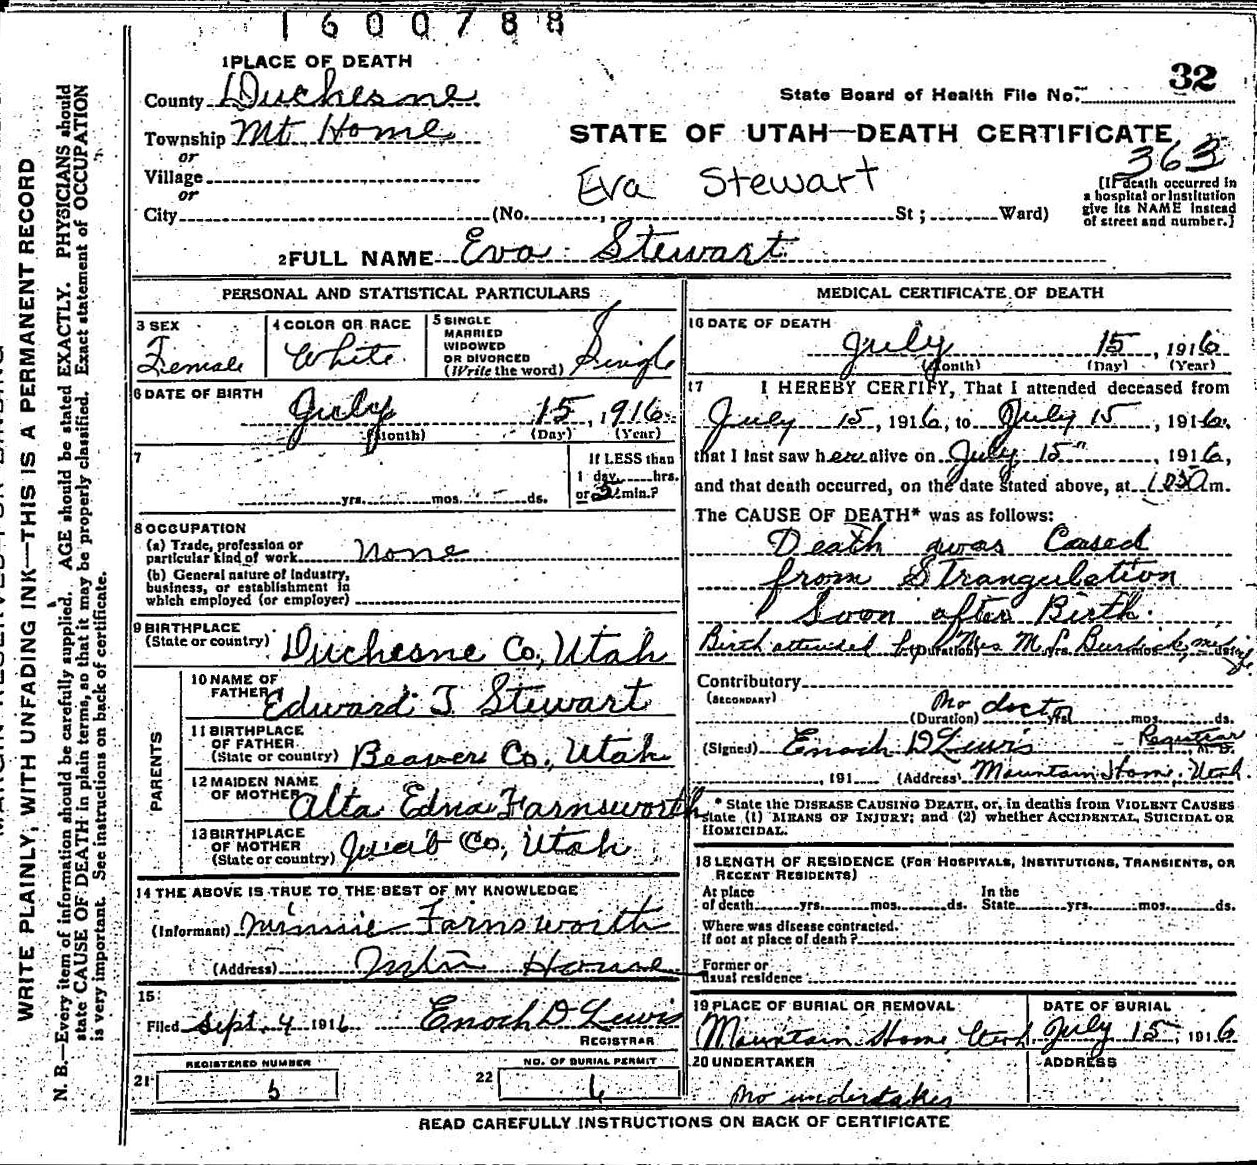 1600788
1 PLACE OF DEATH
County Duchesne
Township Mt. Home
or
Village
or
City (No. , St ; Ward)
32
State Board of Health File No.
STATE OF UTAH—DEATH CERTIFICATE
363
Eva Stewart
[If death occurred in
a hospital or institution
give its NAME instead
of street and number.]
2 FULL NAME Eva Stewart
PERSONAL AND STATISTICAL PARTICULARS
3 SEX
Female
4 COLOR OR RACE
White
5 SINGLE
MARRIED
WIDOWED
OR DIVORCED
(Write the word)
Single
6 DATE OF BIRTH
July 15, 1916
(Month) (Day) (Year)
7
yrs. mos. ds.
If LESS than
1 day, hrs.
or 5 min.?
8 OCCUPATION
(a) Trade, profession or
particular kind of work None
(b) General nature of industry,
business, or establishment in
which employed (or employer)
9 BIRTHPLACE
(State or country) Duchesne Co., Utah
PARENTS
10 NAME OF
FATHER Edward T. Stewart
11 BIRTHPLACE
OF FATHER
(State or country) Beaver Co., Utah
12 MAIDEN NAME
OF MOTHER Alta Edna Farnsworth
13 BIRTHPLACE
OF MOTHER
(State or country) Juab Co., Utah
14 THE ABOVE IS TRUE TO THE BEST OF MY KNOWLEDGE
(Informant) Minnie Farnsworth
(Address) Mtn Home
15
Filed Sept. 4 1916 Enoch D Lewis
REGISTRAR
REGISTERED NUMBER
21 5
NO. OF BURIAL PERMIT
22 6
MEDICAL CERTIFICATE OF DEATH
16 DATE OF DEATH
July 15, 1916
(Month) (Day) (Year)
17 I HEREBY CERTIFY, That I attended deceased from
July 15, 1916, to July 15, 1916,
that I last saw her alive on July 15", 1916,
and that death occurred, on the date stated above, at m.
The CAUSE OF DEATH* was as follows:
Death was Caused
from Strangulation
Soon after Birth.
Birth attended by Mrs M. L. Burdick,
(Duration) yrs. mos. ds.
Contributory
(SECONDARY)
No doctor
(Duration) yrs. mos. ds.
(Signed) Enoch D Lewis Registrar M. D.
, 191 (Address) Mountain Home, Utah.
* State the DISEASE CAUSING DEATH, or, in deaths from VIOLENT CAUSES
state (1) MEANS OF INJURY; and (2) whether ACCIDENTAL, SUICIDAL OR
HOMICIDAL.
18 LENGTH OF RESIDENCE (FOR HOSPITALS, INSTITUTIONS, TRANSIENTS, OR
RECENT RESIDENTS)
At place
of death yrs. mos. ds.
In the
State yrs. mos. ds.
Where was disease contracted.
if not at place of death?
Former or
usual residence
19 PLACE OF BURIAL OR REMOVAL
Mountain Home, Utah.
DATE OF BURIAL
July 15, 1916
20 UNDERTAKER
No undertaker
ADDRESS
READ CAREFULLY INSTRUCTIONS ON BACK OF CERTIFICATE
WRITE PLAINLY, WITH UNFADING INK—THIS IS A PERMANENT RECORD
N. B.—Every item of information should be carefully supplied. AGE should be stated EXACTLY. PHYSICIANS should
state CAUSE OF DEATH in plain terms, so that it may be properly classified. Exact statement of OCCUPATION
is very important. See instructions on back of certificate.